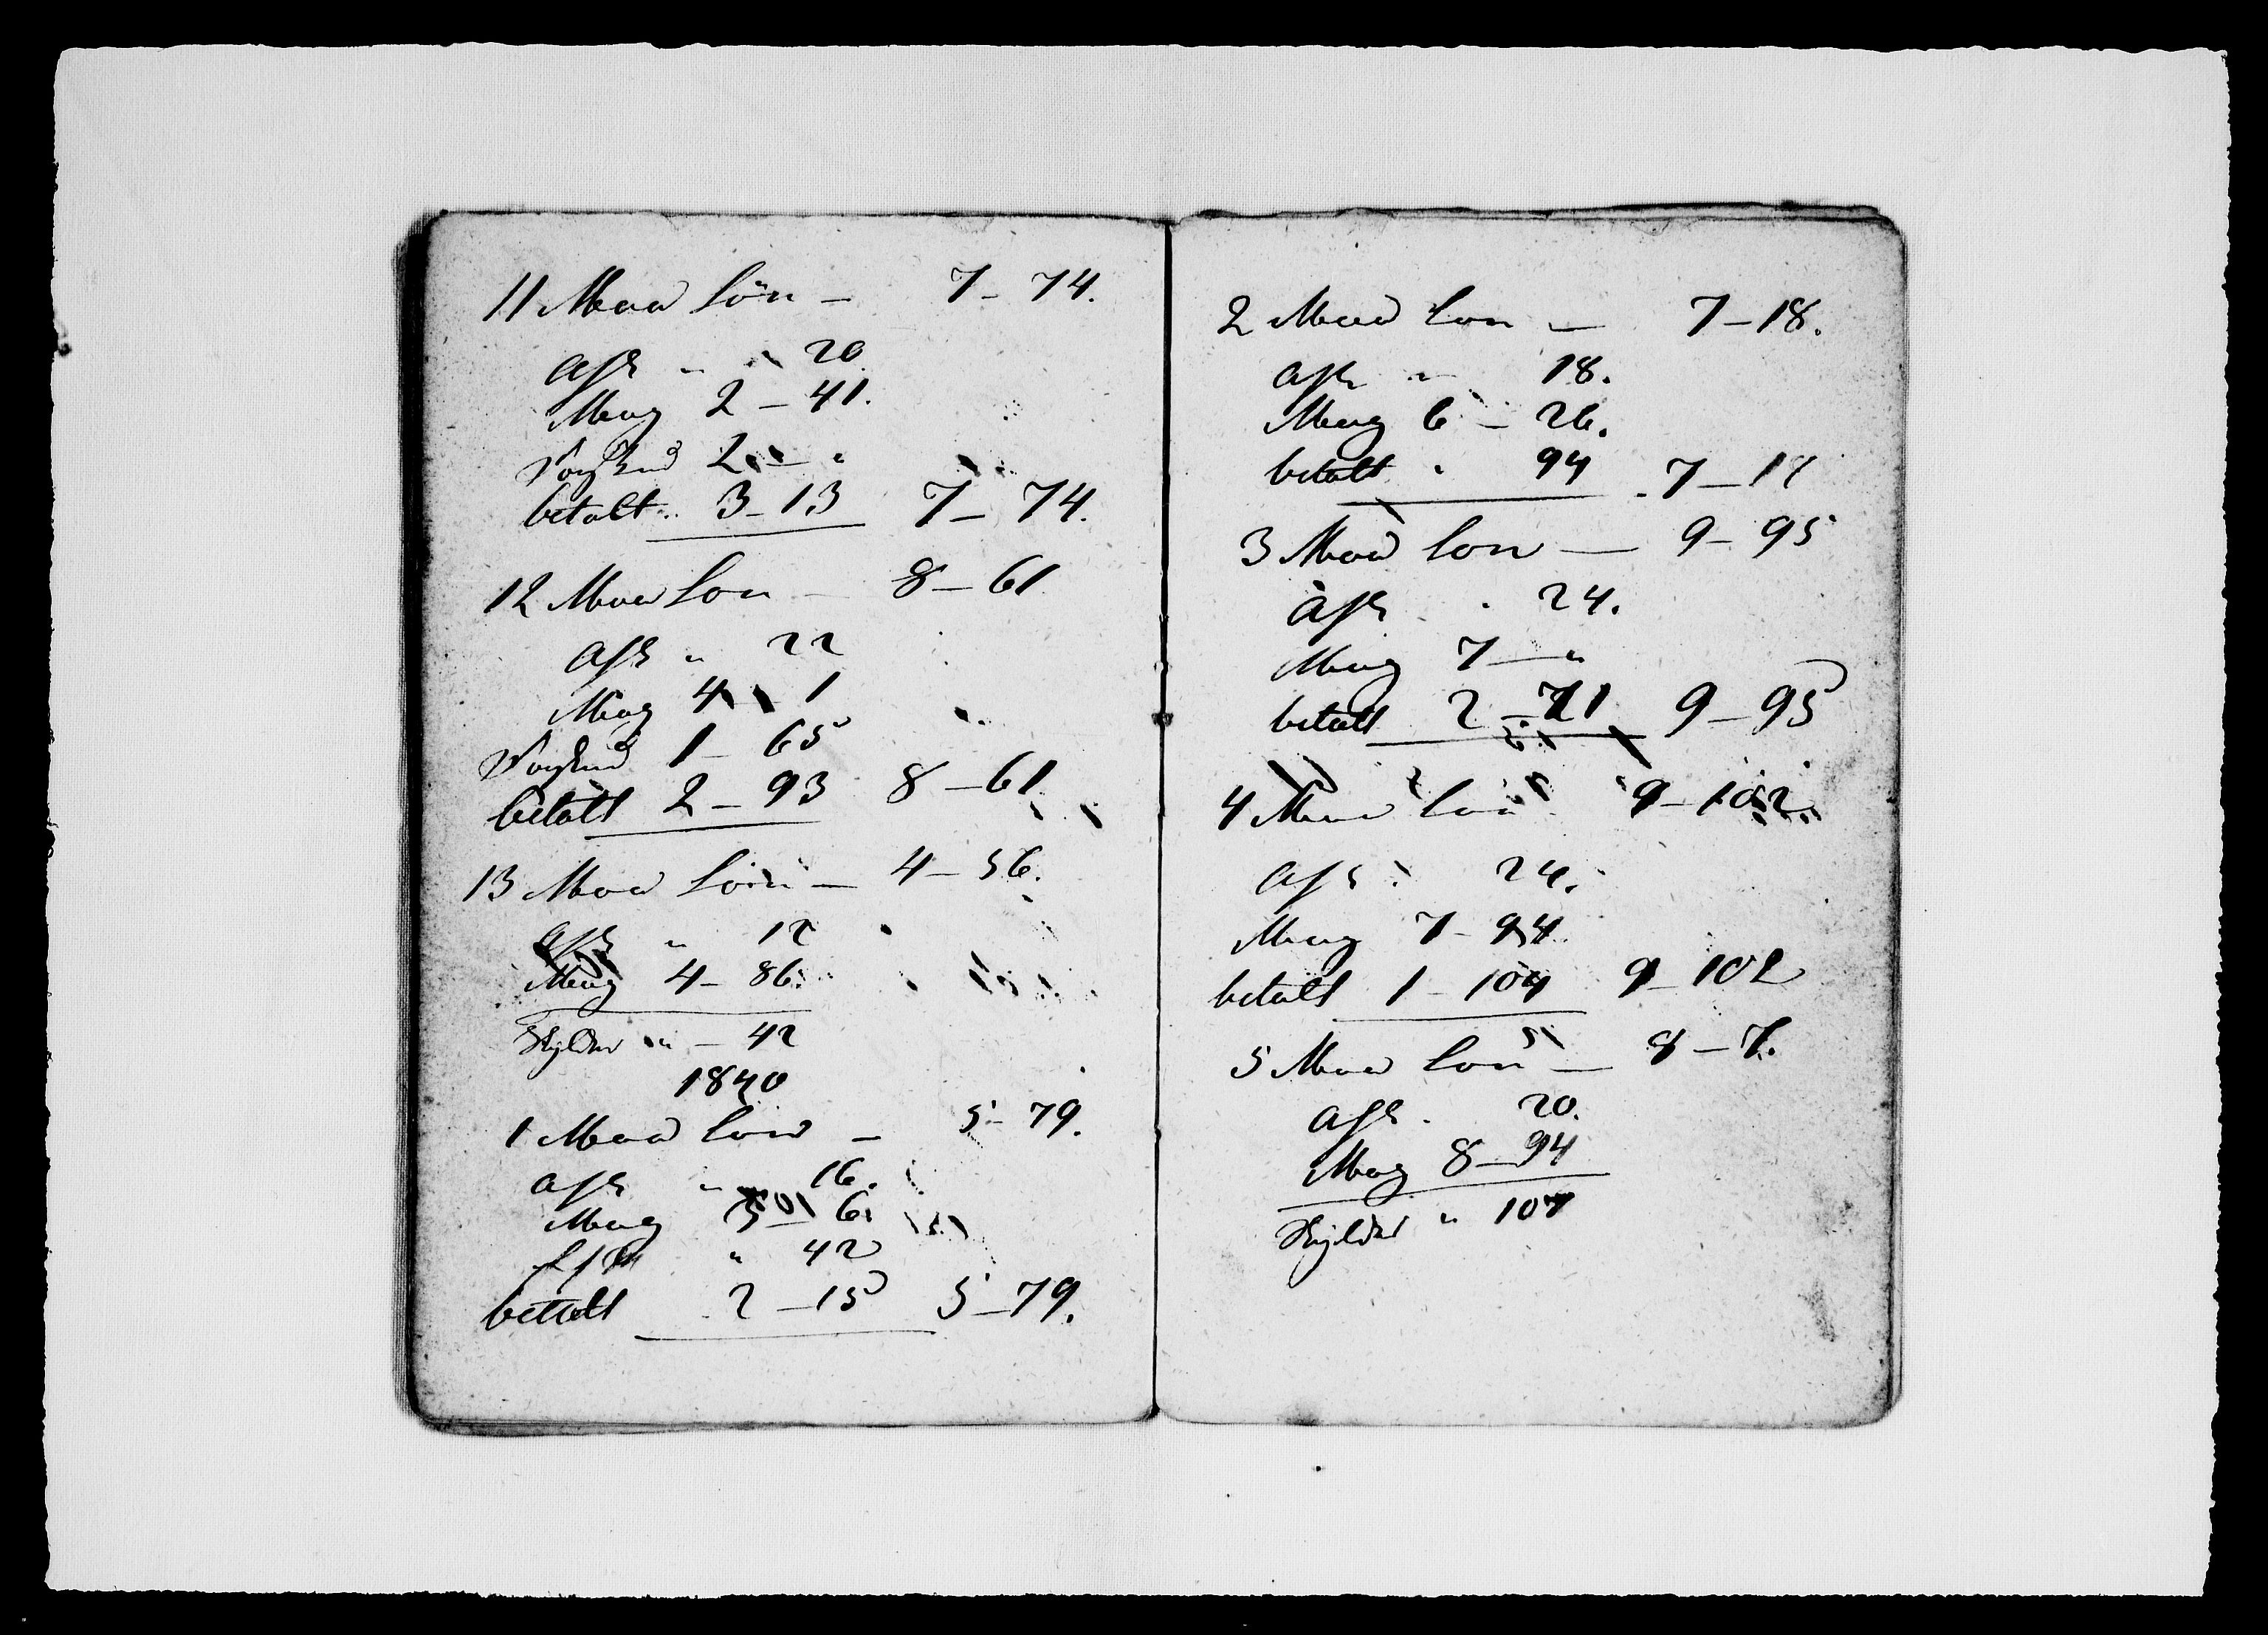 11 Maad Lön — 7 - 74.
afk " 20
Mag 2 - 41.
Forskud 2 — "
betalt 3 - 13 7 - 74.
12 Maad Lon — 8 - 61
afk " 22
Mag 4 - 1
Forskud 1 - 65
betalt 2 - 93 8 - 61
13 Maad Lön — 4 - 56.
afk " 12
Mag 4 - 86
Skylder " - 42
1840
1 Maad Lon — 5 - 79.
afk " 16.
Mag 3 - 6
" 42
betalt 2 - 15 5 - 79.
2 Maad Lon — 7 - 18.
afk " 18.
Mag 6 - 26.
betalt " 94 7 - 18
3 Maad Lon — 9 - 95
afk " 24.
Mag 7 — "
betalt 2 - 71 9 - 95
4 Maad Lon 9 - 102.
afk " 24.
Mag 7 - 94
betalt 1 - 104 9 - 102
5 Maad Lon — 8 - 7.
afk " 20.
Mag 8 - 94
Skylder " 107